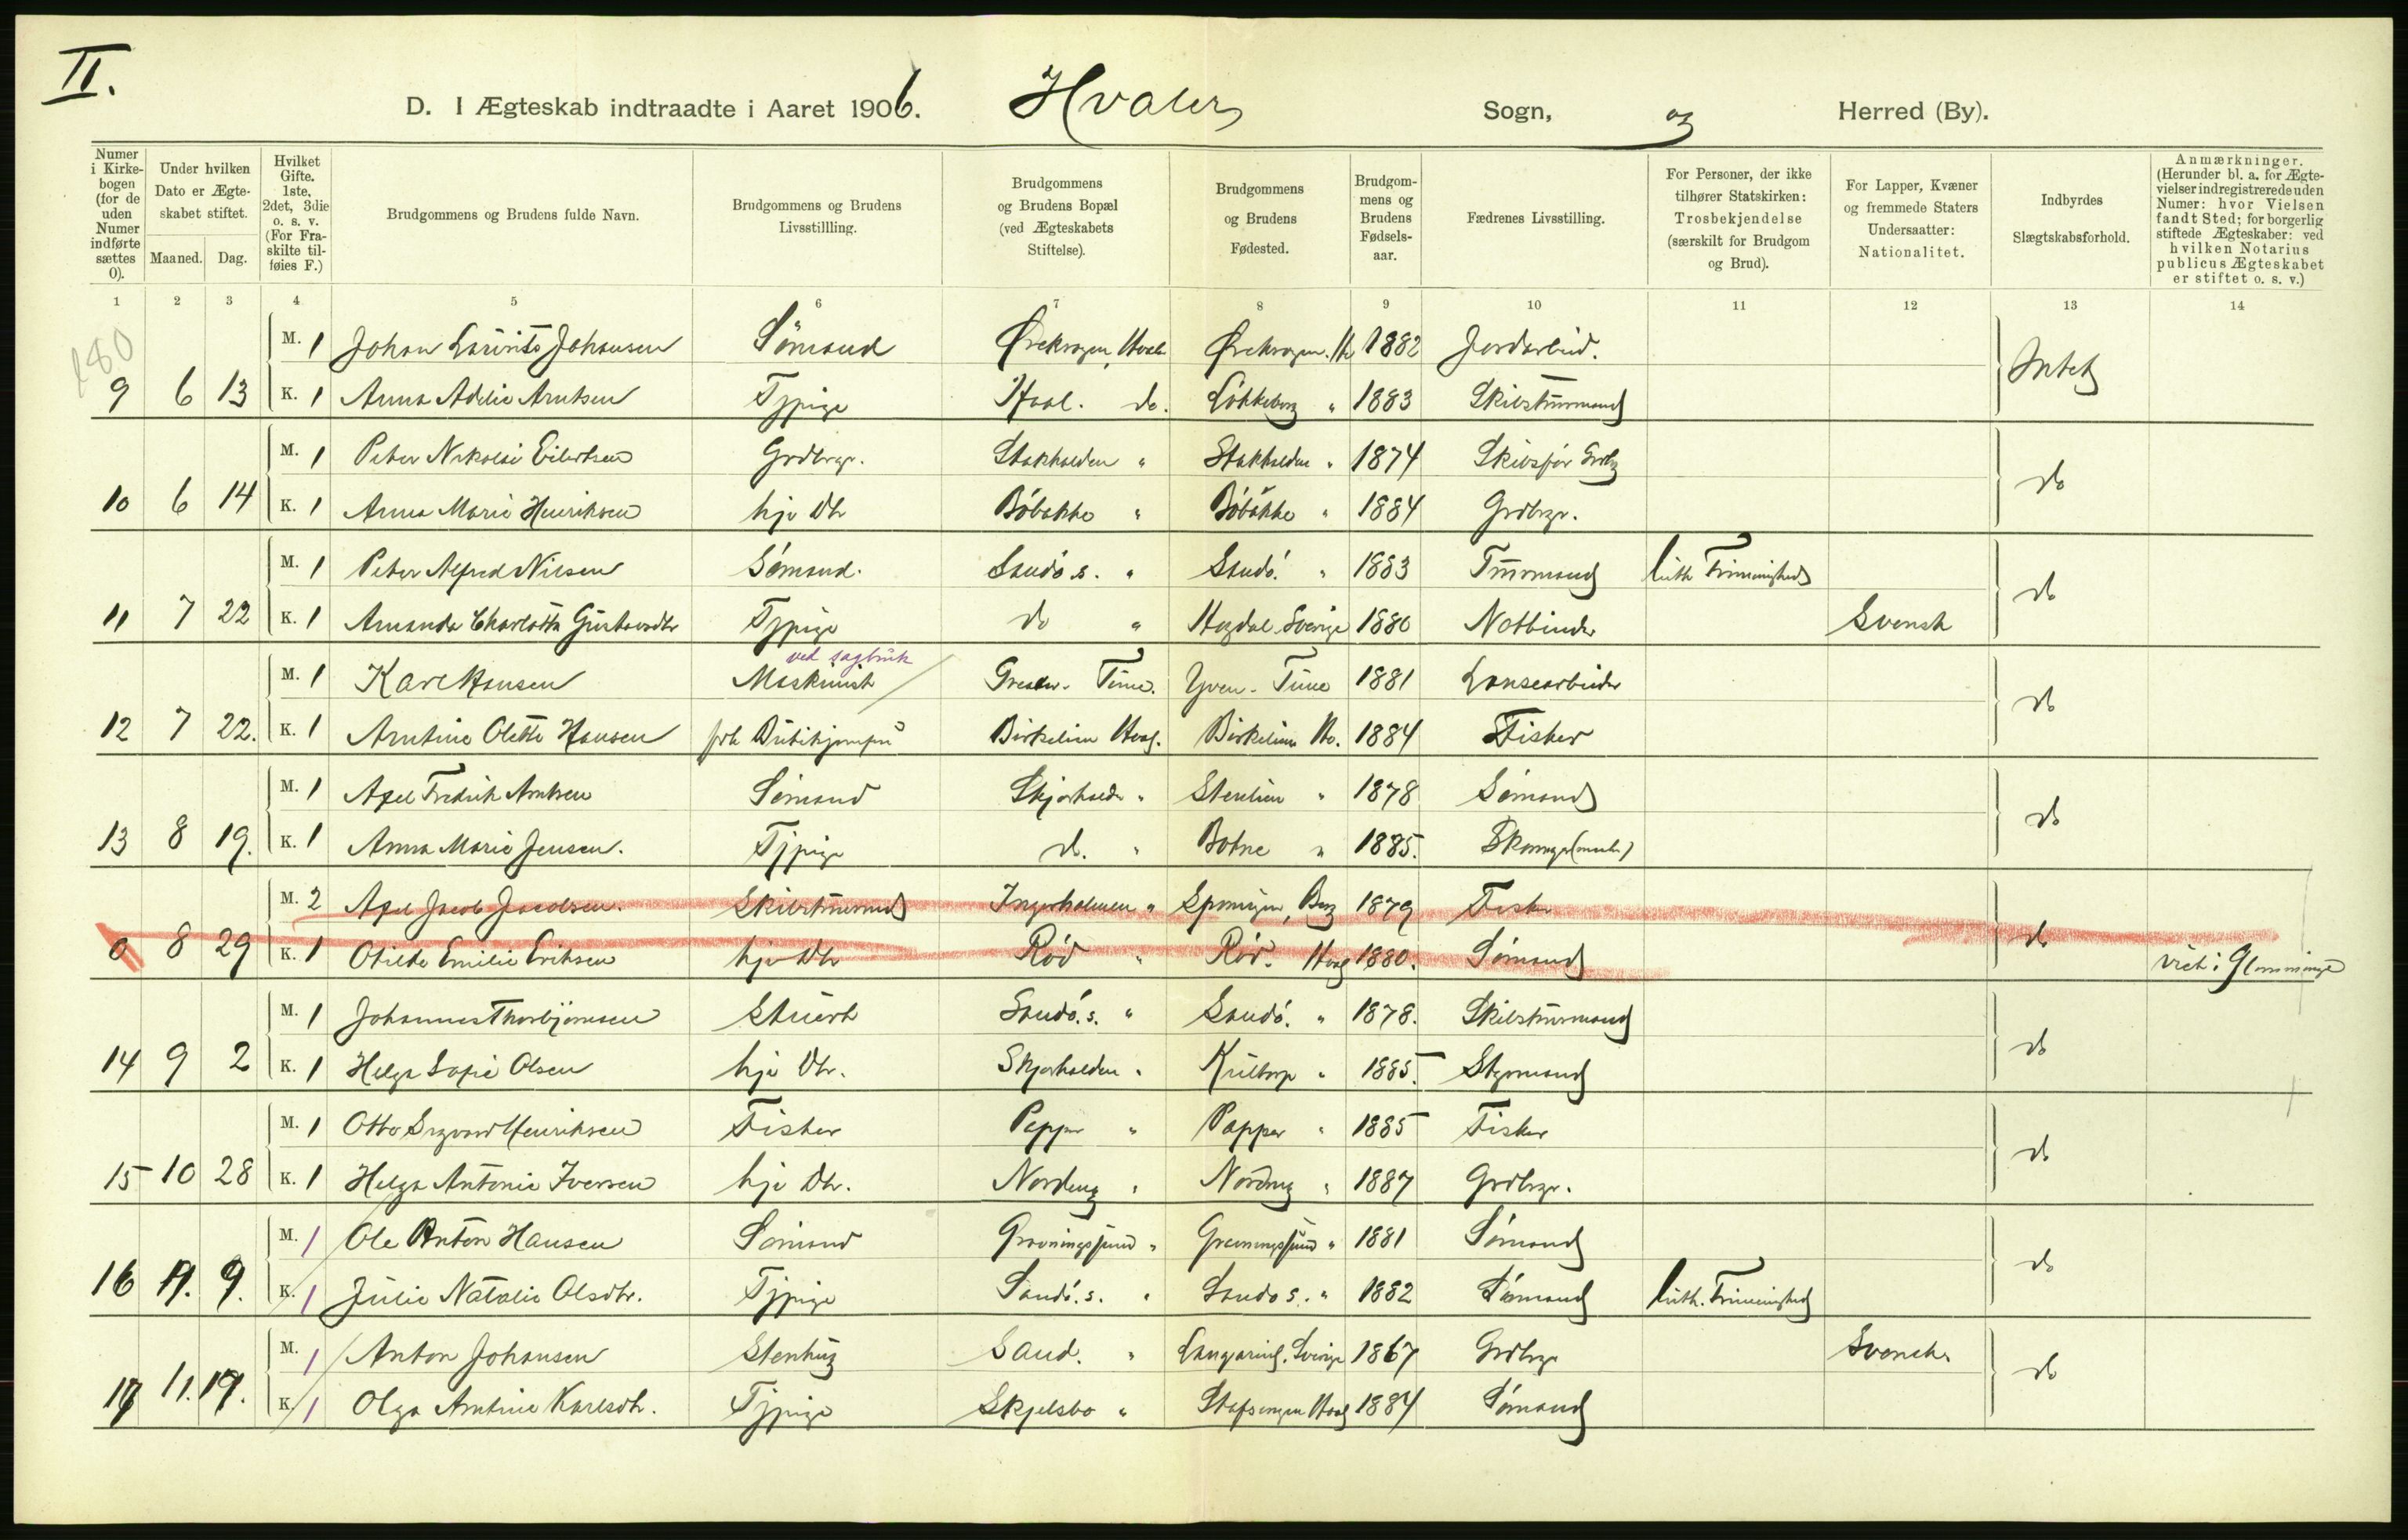 II.
D. I Ægteskab indtraadte i Aaret 1906. Hvaler Sogn, og Herred (By).
Numer i Kirkebogen (for de uden Numer indførte sættes 0).
Under hvilken Dato er Ægteskabet stiftet.
Maaned. Dag.
Hvilket Gifte. 1ste, 2det, 3die o. s. v. (For Fraskilte tilføies F.)
Brudgommens og Brudens fulde Navn.
Brudgommens og Brudens Livsstillling.
Brudgommens og Brudens Bopæl (ved Ægteskabets Stiftelse).
Brudgommens og Brudens Fødested.
Brudgommens og Brudens Fødselsaar.
Fædrenes Livsstilling.
For Personer, der ikke tilhører Statskirken: Trosbekjendelse (særskilt for Brudgom og Brud).
For Lapper, Kvæner og fremmede Staters Undersaatter: Nationalitet.
Indbyrdes Slægtskabsforhold.
Anmærkninger. (Herunder bl. a. for Ægtevielser indregistrerede uden Numer: hvor Vielsen fandt Sted; for borgerlig stiftede Ægteskaber: ved hvilken Notarius publicus Ægteskabet er stiftet o. s. v.)
1 2 3 4 5 6 7 8 9 10 11 12 13 14
180
M. 1 Johan Laurits Johansen Sömand Ørekrogen, Hval. Ørekrogen. Hv 1882 Jordarbeid. Intet
9 6 13 K. 1 Anna Adelie Arntsen Tjpige do. Løkkeberg " 1883 Skibstürmand
M. 1 Peter Nikolai Eilertsen Grdbrgr. Stokholden " Stokholden " 1874 Skibsfør do
10 6 14 K. 1 Anna Marie Henriksen hje Dtr Böbakke " Böbakke " 1884 Grdbrgr.
M. 1 Peter Alfred Nilsen Sömand. Sandö s. " Sandö. " 1883 luth Frimenighed do
11 7 22 K. 1 Amanda Charlotta Gustavsdtr Tjpige do " Hogdal Sverige 1880 Notbinder Svensk
ved sagbruk
M. 1 Karl Hansen Maskinist Greaker. Tune. Yven. Tune 1881 Lonsearbeider do
12 7 22. K. 1 Arntine Olette Hansen Birkelien Hval. Birkelien Hv. 1884 Fisker
M. 1 Axel Fredrik Arntsen Sömand Skjærhalden " Stenlien " 1878 Sömand do
13 8 19. K. 1 Anna Marie Jensen. Tjpige d. " Botne " 1885.
M. 2 Axel Jacob Jacobsen. Skibstürmand Ingerholmen " 1879 Fisker do
0 8 29 K. 1 Otilde Emilie Eriksen hje Dtr Röd " Röd. Hval 1880. Sömand viet i Glemminge
M. 1 Johannes Thorbjörnsen Stuert Sandö. s. " Sandö. " 1878. Skibstürmand do
14 9 2 K. 1 Helga Sofie Olsen hje Dtr. Skjærhalden " Kiiltorp " 1885. Styrmand
M. 1 Otto Sigvard Henriksen Fisker Papper " Papper " 1885 Fisker do
15 10 28 K. 1 Helga Antonie Iversen hje Dtr. Nordeng " Nordeng " 1887 Grdbrgr.
M. 1 Ole Anton Hansen Sömand Gravningssund " Gravningssund " 1881 Sömand do
16 11. 9. K. 1 Julie Natalie Olsdtr. Tjpige Sandö. s. " Sandö s. " 1882 Sömand luth. Frimenighed
M. 1 Anton Johansen Stenhug Sand. " Sverige 1867 Grdbrgr Svensk do
17 11. 17. K. 1 Olga Arntine Karlsdtr. Tjpige Skjelsbo " Hval 1884 Sömand